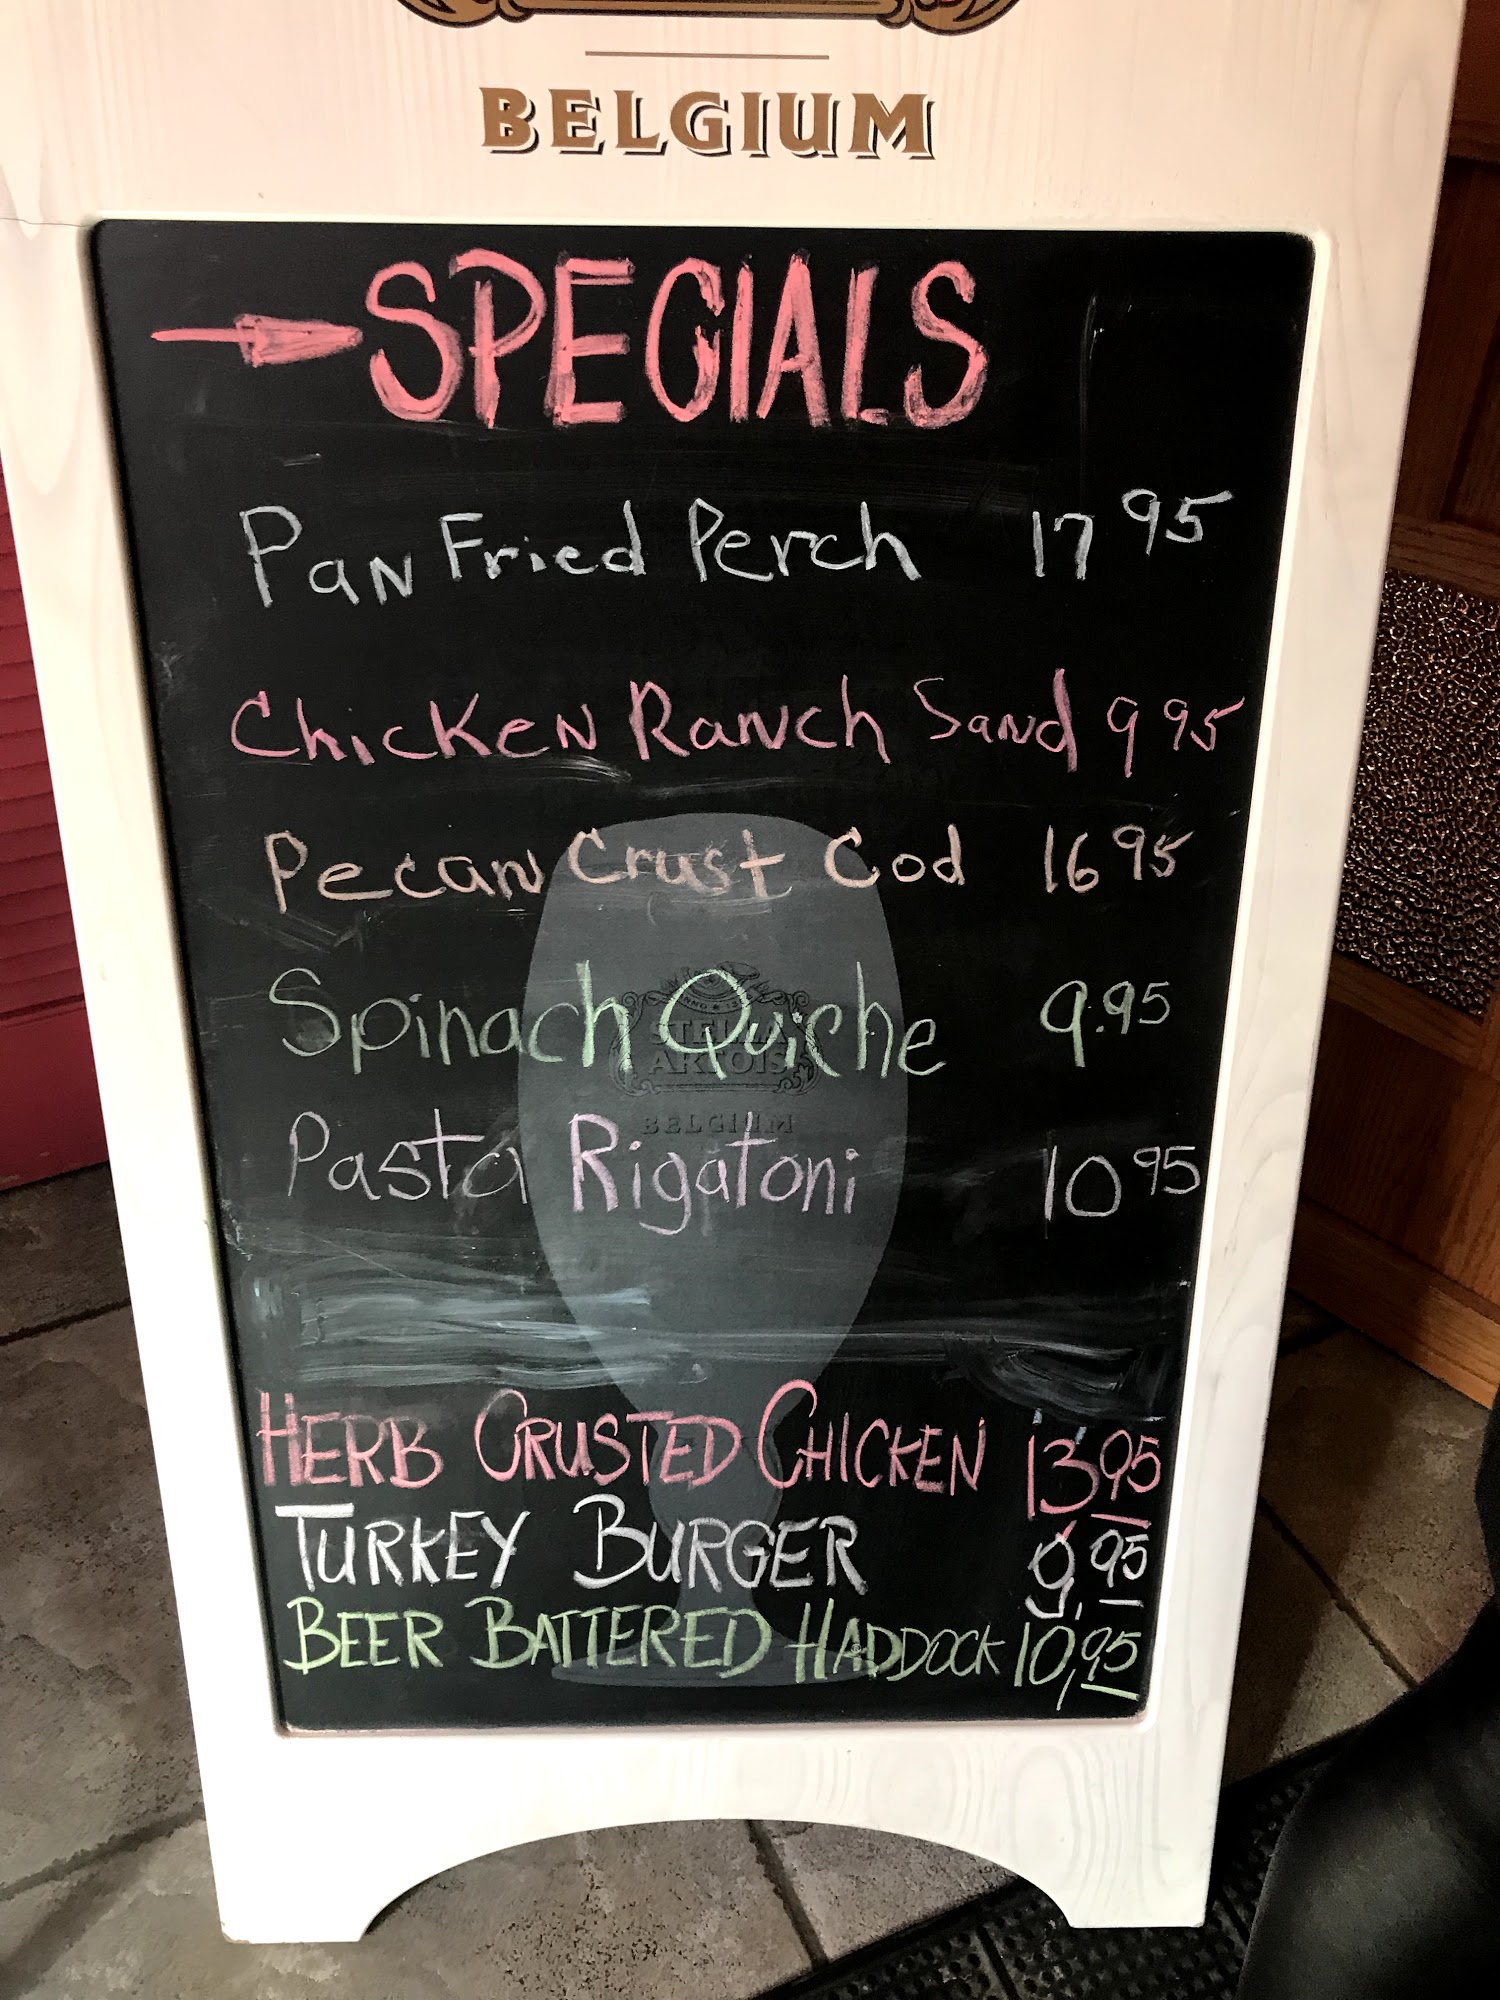 BELGIUM
SPECIALS
Pan Fried Perch 17 95
Chicken Ranch Sand 9 95
Pecan Crust Cod 16 95
Spinach Quiche 9.95
STELLA
ARTOIS
BELGIUM
Pasta Rigatoni 10 95
HERB CRUSTED CHICKEN 13 95
TURKEY BURGER 9.95
BEER BATTERED HADDOCK 10,95